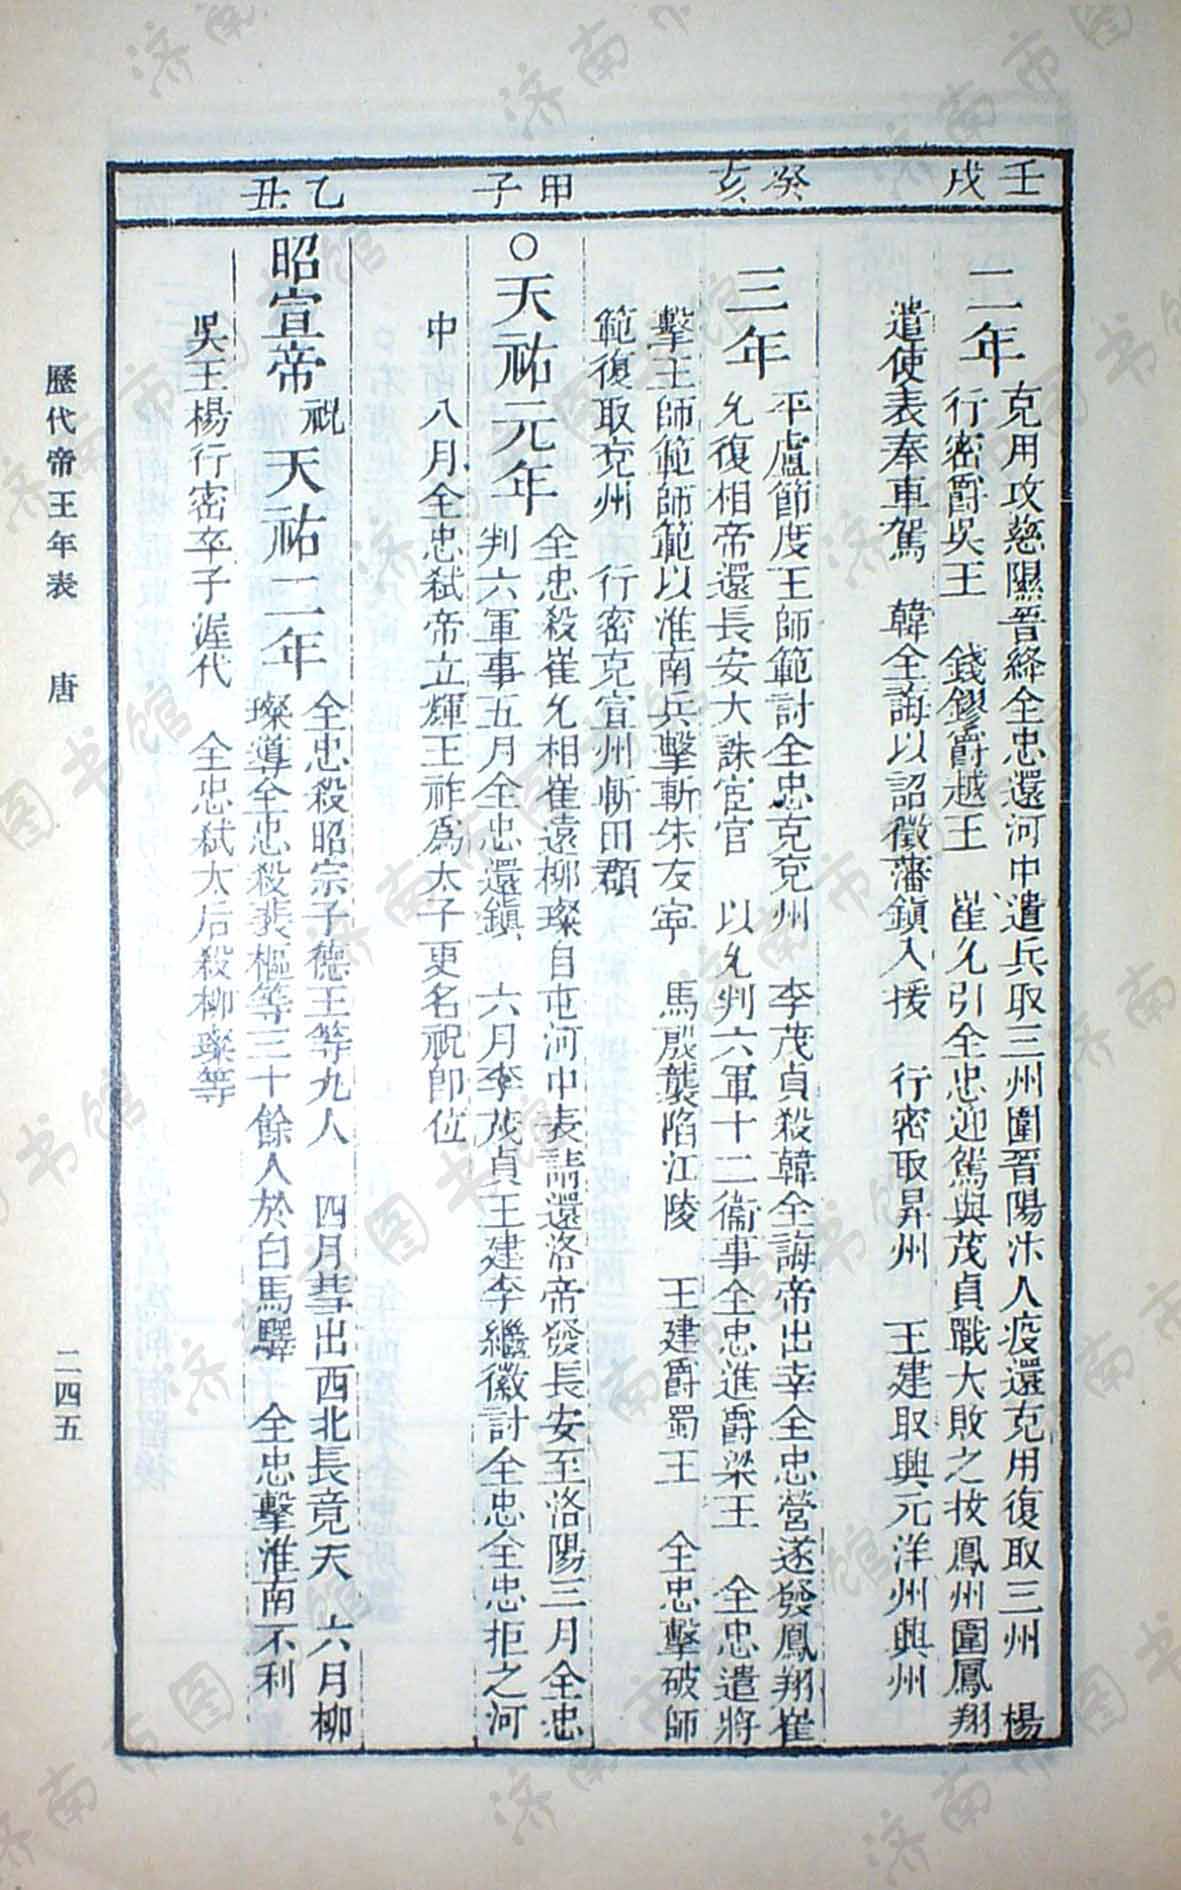 壬戌
二年
克用攻慈隰晉絳全忠還河中遣兵取三州圍晉陽汴人疫還克用復取三州　楊
行密爵吳王　錢鏐爵越王　崔允引全忠迎駕與茂貞戰大敗之扳鳳州圍鳳翔
遣使表奉車駕　韓全誨以詔徵藩鎮入援　行密取昇州　王建取興元洋州興州
癸亥
三年
平盧節度王師範討全忠克兗州　李茂貞殺韓全誨帝出幸全忠營遂發鳳翔崔
允復相帝還長安大誅宦官　以允判六軍十二衞事全忠進爵梁王　全忠遣將
擊王師範師範以淮南兵擊斬朱友寧　馬殷襲陷江陵　王建爵蜀王　全忠擊破師
範復取兗州　行密克宣州斬田頵
甲子
○天祐元年
全忠殺崔允相崔遠柳璨自屯河中表請還洛帝發長安至洛陽三月全忠
判六軍事五月全忠還鎮　六月李茂貞王建李繼徽討全忠全忠拒之河
中　八月全忠弑帝立輝王祚爲太子更名祝即位
乙丑
昭宣帝祝天祐二年
全忠殺昭宗子德王等九人　四月彗出西北長竟天　六月柳
璨導全忠殺裴樞等三十餘人於白馬驛　全忠擊淮南不利
吳王楊行密卒子渥代　全忠弑太后殺柳璨等
歷代帝王年表　唐
二四五
济南市图书馆